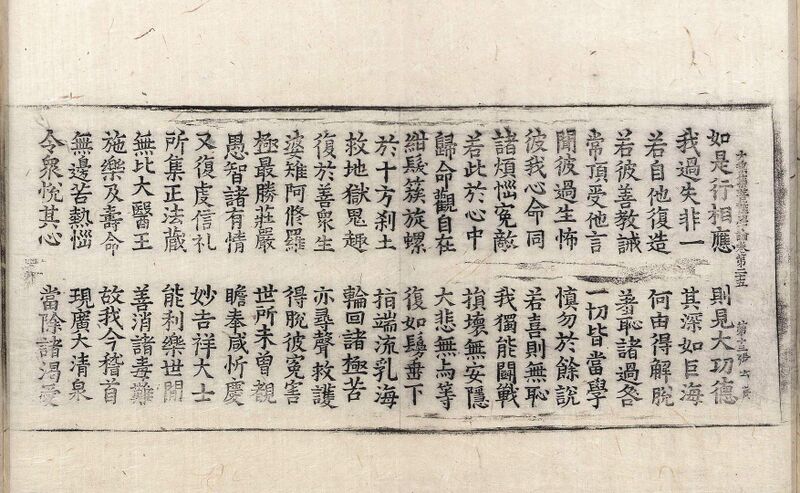 如是行相應　則見大功德
我過失非一　其深如巨海
若自他復造　何由得解脫
若彼善教誡　羞恥諸過咎
常頂受他言　一切皆當學
聞彼過生怖　慎勿於餘說
彼我心命同　若喜則無恥
諸煩惱寃敵　我獨能鬪戰
若此於心中　損壞無安隱
歸命觀自在　大悲無与等
紺髮簇旋螺　復如鬘垂下
於十方刹土　指端流乳海
救地獄鬼趣　輪回諸極苦
復於善衆生　亦尋聲救護
婆雉阿脩羅　得脫彼寃害
極最勝莊嚴　世所未曾覩
愚智諸有情　瞻奉咸忻慶
又復虔信礼　妙吉祥大士
所集正法蔵　能利樂世間
無比大醫王　善消諸毒難
施樂及壽命　故我今稽首
無邊苦熱惱　現廣大清泉
令衆悅其心　當除諸渴愛